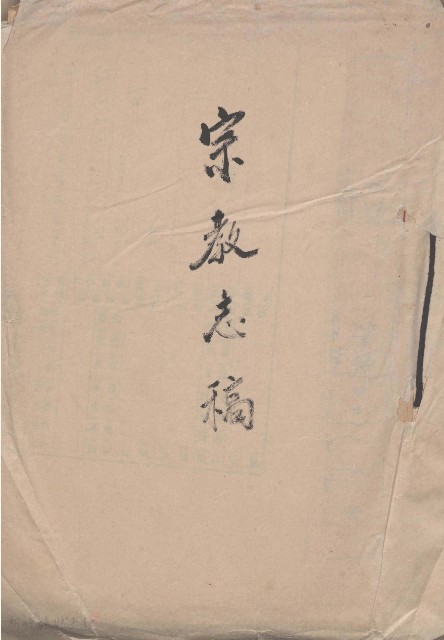 宗教志稿